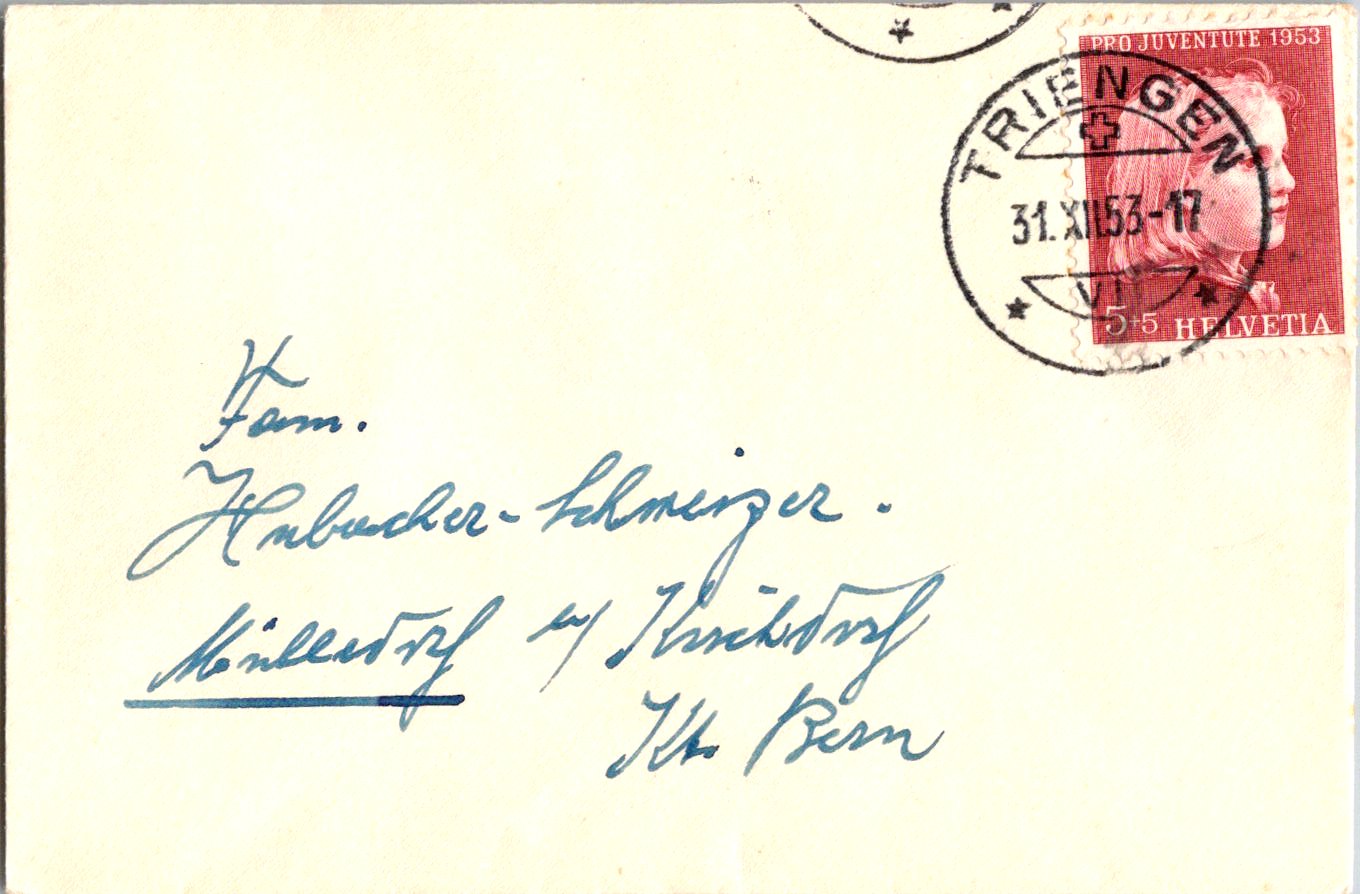 PRO JUVENTUTE 1953
TRIENGEN
31.XII.53-17
VII
5+5 HELVETIA
Fam.
Hubacher-Schweizer.
Mülledorf b/ Kirchdorf
Kt. Bern